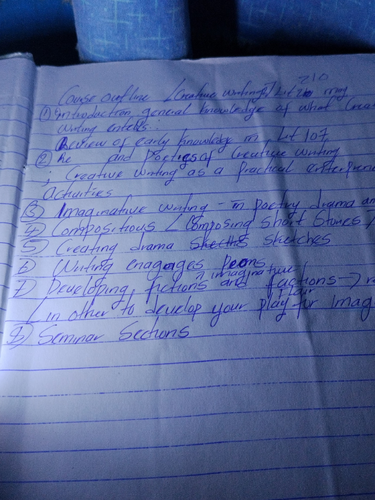 210
Course outline (creative writing) Lit my
① introduction, general knowledge of what Crea
writing entels..
Review of early knowledge in Lit 107
② he and poetics of Creative writing
, Creative writing as a practical entreprene
activities
③ Imaginative writing - in poetry drama an
4) Compositions / Composing short stories /
5) Creating drama sketches
6) Writing enagages
7) Developing fictions and factions →
imaginative flair
/ in other to develop your play for imag
8) Seminar Sections